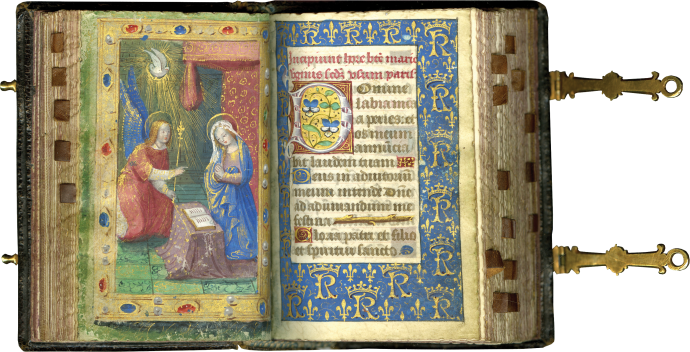 Incipiunt hore bte marie
ginis scdm usum paris
Domine
labia mea
aperies: et
os meum
annuncia
bit laudem tuam
Deus in adiutorium
meum intende Dne
ad adiuuandum me
festina
Gloria patri et filio
et spiritui sancto
R
R
R
R
R
R